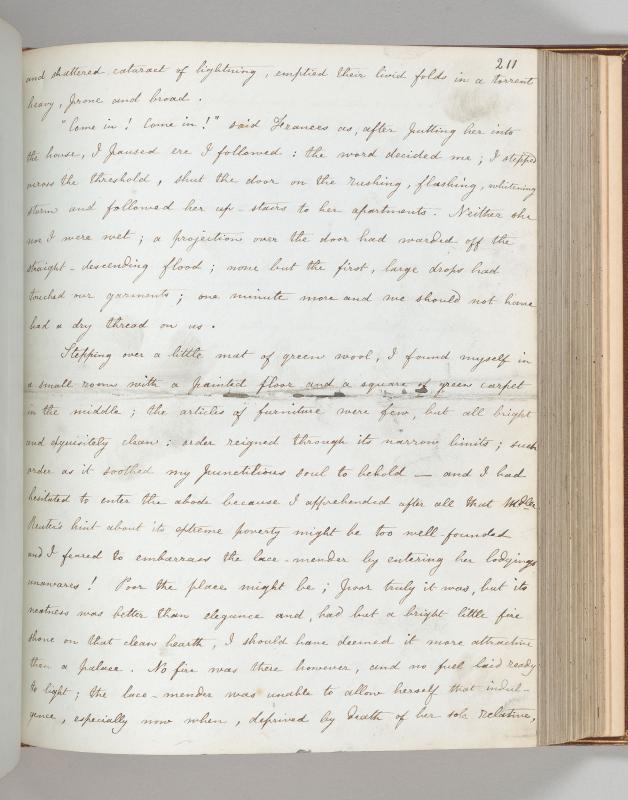 211
and shattered cataract of lightning, emptied their livid folds in a torrent
heavy, prone and broad.
"Come in! Come in!" said Frances as, after putting her into
the house, I paused ere I followed: the word decided me; I stepped
across the threshold, shut the door on the rushing, flashing, whitening
storm and followed her up-stairs to her apartments. Neither she
nor I were wet; a projection over the door had warded off the
straight-descending flood; none but the first, large drops had
touched our garments; one minute more and we should not have
had a dry thread on us.
Stepping over a little mat of green wool, I found myself in
a small room with a painted floor and a square of green carpet
in the middle; the articles of furniture were few, but all bright
and exquisitely clean: order reigned through its narrow limits; such
order as it soothed my punctilious soul to behold — and I had
hesitated to enter the abode because I apprehended after all that Mdlle
Reuter's hint about its extreme poverty might be too well-founded
and I feared to embarrass the lace-mender by entering her lodgings
unawares! Poor the place might be; poor truly it was, but its
neatness was better than elegance and, had but a bright little fire
shone on that clean hearth, I should have deemed it more attractive
than a palace. No fire was there however, and no fuel laid ready
to light; the lace-mender was unable to allow herself that indul-
gence, especially now when, deprived by death of her sole relative,